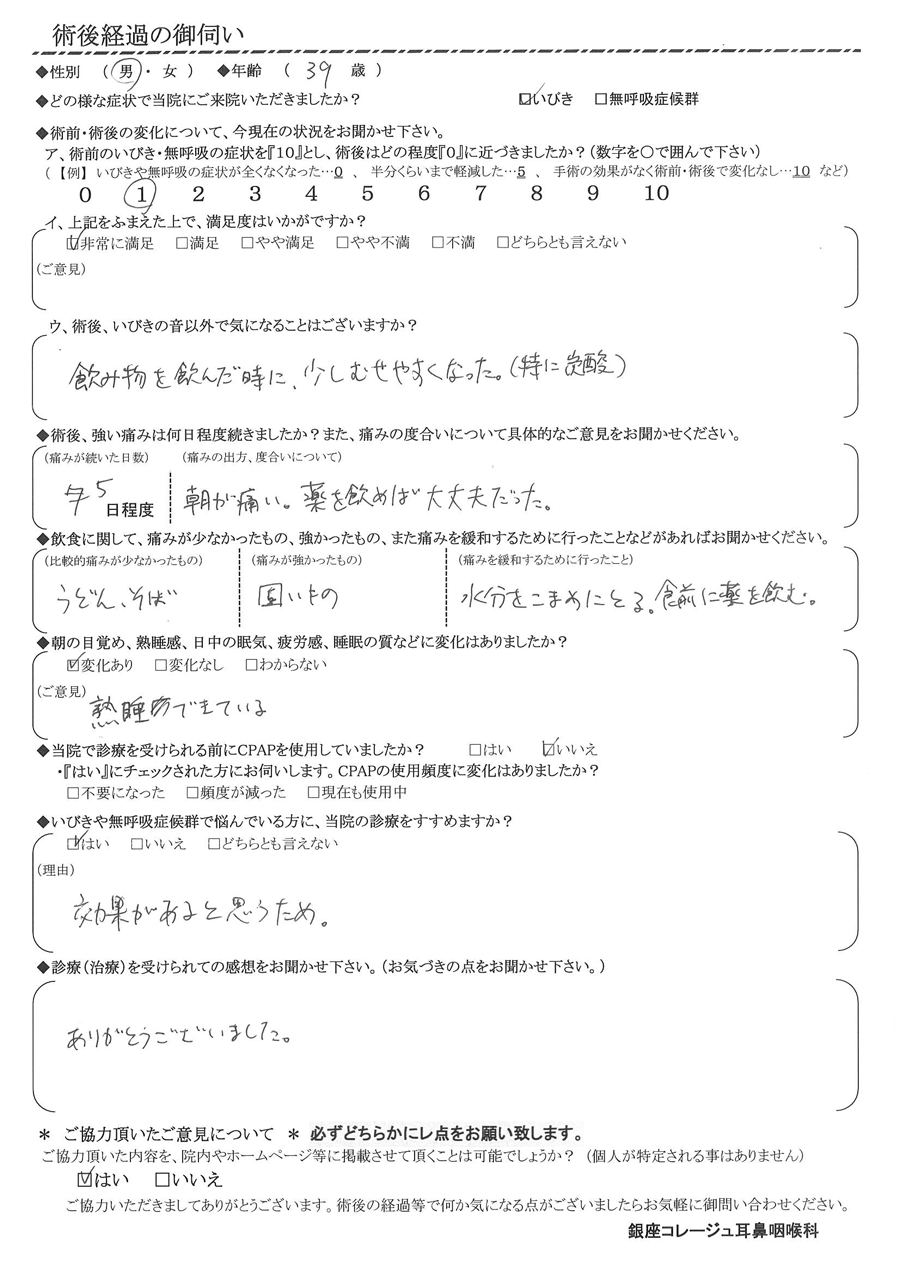 術後経過の御伺い
◆性別 （ 男 ・ 女 ） ◆年齢 （ 39 歳 ）
◆どの様な症状で当院にご来院いただきましたか？ ☑いびき □無呼吸症候群
◆術前・術後の変化について、今現在の状況をお聞かせ下さい。
ア、術前のいびき・無呼吸の症状を『10』とし、術後はどの程度『0』に近づきましたか？（数字を〇で囲んで下さい）
（ 【例】 いびきや無呼吸の症状が全くなくなった…0 、 半分くらいまで軽減した…5 、 手術の効果がなく術前・術後で変化なし…10 など）
0 1 2 3 4 5 6 7 8 9 10
イ、上記をふまえた上で、満足度はいかがですか？
☑非常に満足 □満足 □やや満足 □やや不満 □不満 □どちらとも言えない
（ご意見）
ウ、術後、いびきの音以外で気になることはございますか？
飲み物を飲んだ時に、少しむせやすくなった。（特に炭酸）
◆術後、強い痛みは何日程度続きましたか？また、痛みの度合いについて具体的なご意見をお聞かせください。
（痛みが続いた日数） （痛みの出方、度合いについて）
5 日程度 朝が痛い。薬を飲めば大丈夫だった。
◆飲食に関して、痛みが少なかったもの、強かったもの、また痛みを緩和するために行ったことなどがあればお聞かせください。
（比較的痛みが少なかったもの） （痛みが強かったもの） （痛みを緩和するために行ったこと）
うどん、そば 固いもの 水分をこまめにとる。食前に薬を飲む。
◆朝の目覚め、熟睡感、日中の眠気、疲労感、睡眠の質などに変化はありましたか？
☑変化あり □変化なし □わからない
（ご意見）
熟睡できている
◆当院で診療を受けられる前にCPAPを使用していましたか？ □はい ☑いいえ
・『はい』にチェックされた方にお伺いします。CPAPの使用頻度に変化はありましたか？
□不要になった □頻度が減った □現在も使用中
◆いびきや無呼吸症候群で悩んでいる方に、当院の診療をすすめますか？
☑はい □いいえ □どちらとも言えない
（理由）
効果があると思うため。
◆診療（治療）を受けられての感想をお聞かせ下さい。（お気づきの点をお聞かせ下さい。）
ありがとうございました。
＊ ご協力頂いたご意見について ＊ 必ずどちらかにレ点をお願い致します。
ご協力頂いた内容を、院内やホームページ等に掲載させて頂くことは可能でしょうか？ （個人が特定される事はありません）
☑はい □いいえ
ご協力いただきましてありがとうございます。術後の経過等で何か気になる点がございましたらお気軽に御問い合わせください。
銀座コレージュ耳鼻咽喉科